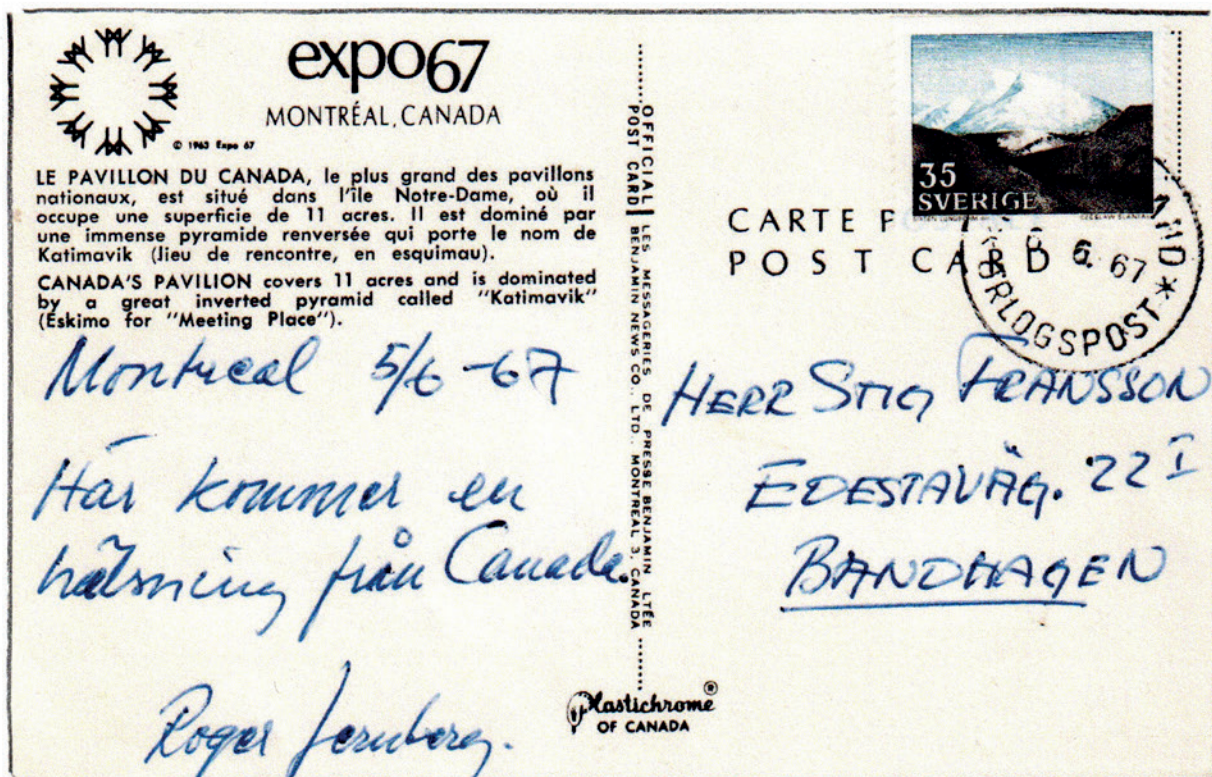 expo67
MONTRÉAL, CANADA
© 1963 Expo 67
LE PAVILLON DU CANADA, le plus grand des pavillons
nationaux, est situé dans l'île Notre-Dame, où il
occupe une superficie de 11 acres. Il est dominé par
une immense pyramide renversée qui porte le nom de
Katimavik (lieu de rencontre, en esquimau).
CANADA'S PAVILION covers 11 acres and is dominated
by a great inverted pyramid called "Katimavik"
(Eskimo for "Meeting Place").
Montreal 5/6 -67
Här kommer en
hälsning från Canada.
Roger Jernberg.
OFFICIAL POST CARD
LES MESSAGERIES DE PRESSE BENJAMIN LTÉE
BENJAMIN NEWS CO., LTD., MONTREAL 3, CANADA
Plastichrome®
OF CANADA
35
SVERIGE
CZESLAW SLANIA
CARTE P
POST CARD
6. 67
ÖRLOGSPOST *
HERR STIG FRANSSON
EDESTAVÄG. 22 I
BANDHAGEN